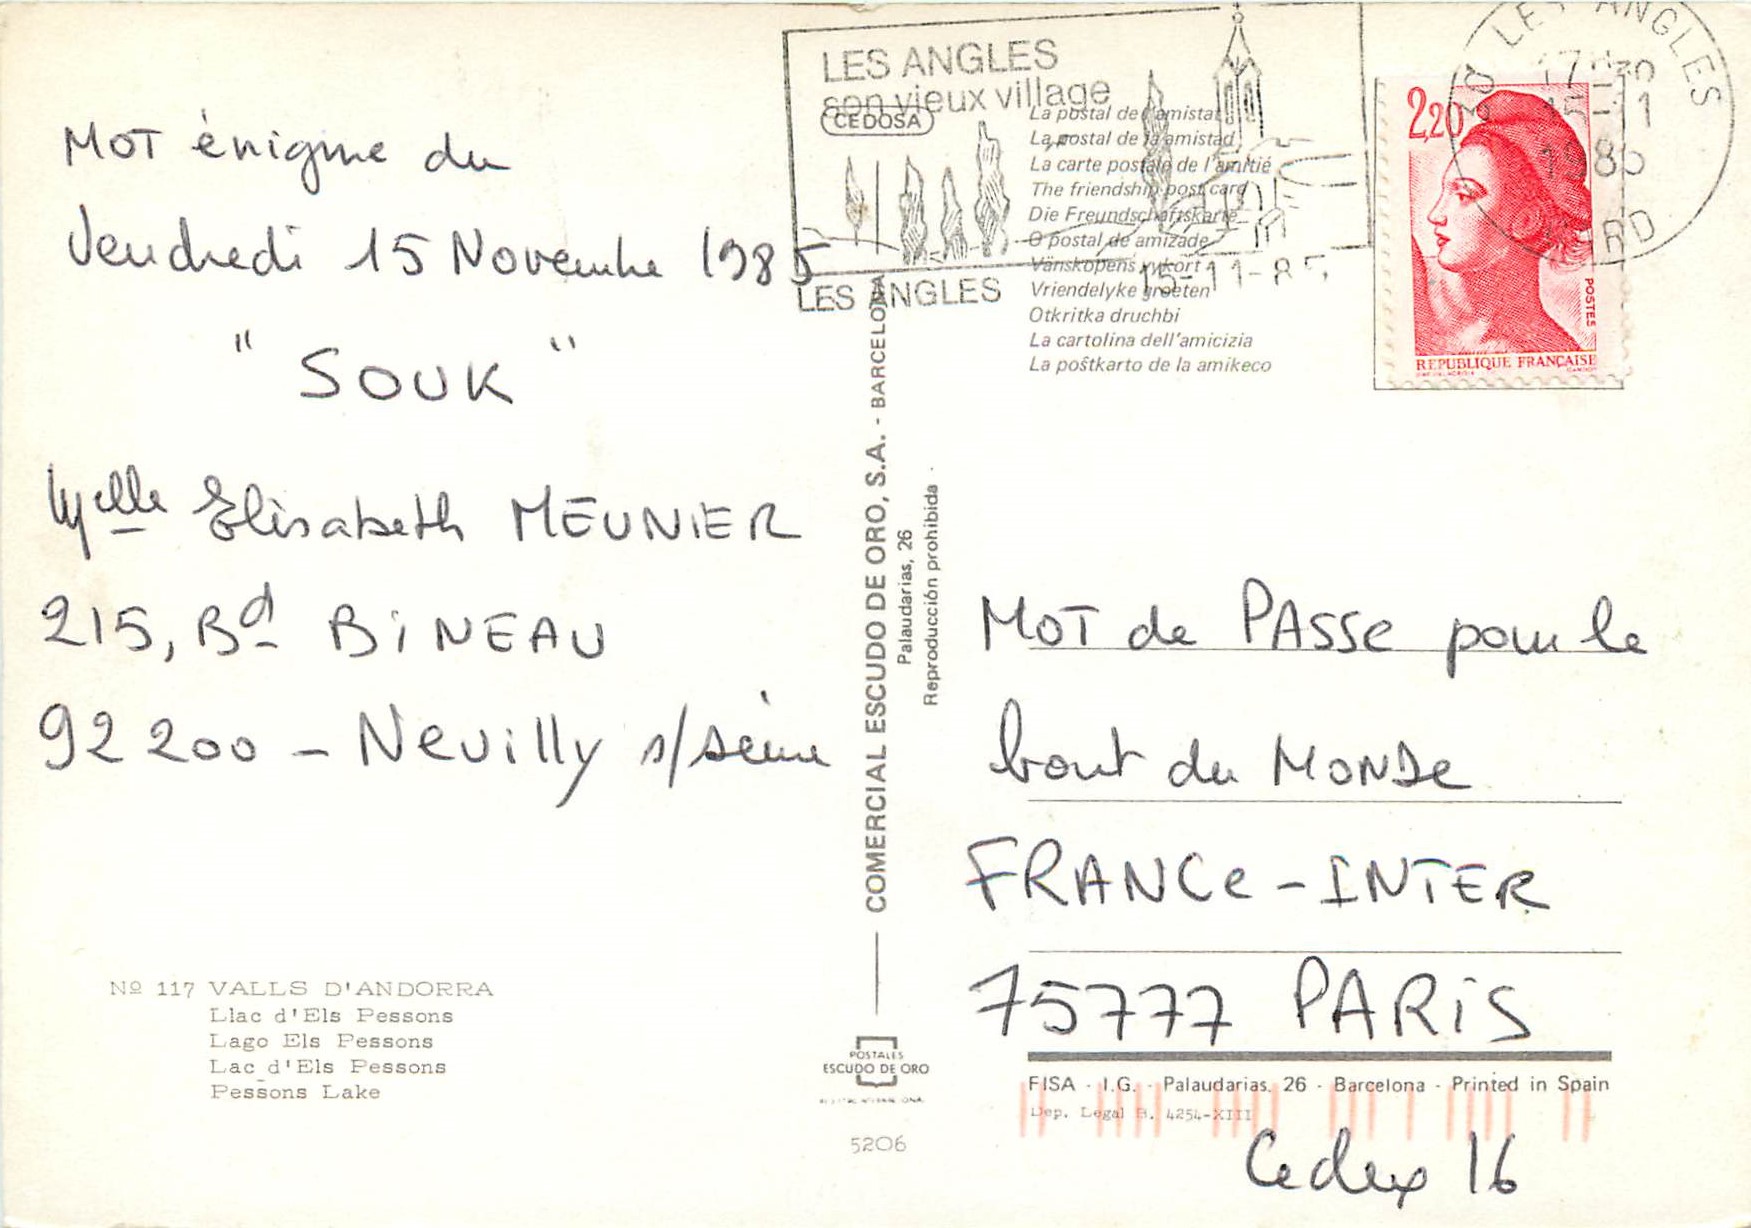 MOT énigme du
Vendredi 15 Novembre 1985
" SOUK "
Melle Elisabeth MEUNIER
215, Bd BiNEAU
92200 - Neuilly s/seine
Nº 117 VALLS D'ANDORRA
Llac d'Els Pessons
Lago Els Pessons
Lac d'Els Pessons
Pessons Lake
LES ANGLES
son vieux village
LES ANGLES
CEDOSA
15-11-85
30 LES ANGLES
17H30
15-11
1985
GARD
2,20
POSTES
REPUBLIQUE FRANÇAISE
La postal de l'amistat
La postal de la amistad
La carte postale de l'amitié
The friendship post card
Die Freundschaftskarte
O postal de amizade
Vänskapens vykort
Vriendelyke groeten
Otkritka druchbi
La cartolina dell'amicizia
La poŝtkarto de la amikeco
COMERCIAL ESCUDO DE ORO, S.A. - BARCELONA
Palaudarias, 26
Reproducción prohibida
POSTALES
ESCUDO DE ORO
5206
MOT de PASSe pour le
bout du MONDe
FRANCe-INTER
75777 PARiS
FISA - I.G. - Palaudarias, 26 - Barcelona - Printed in Spain
Dep. Legal B. 4254-XIII
Cedex 16